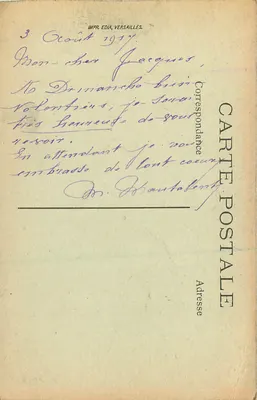 IMP. EDIA, VERSAILLES.
3 Août 1917
Mon cher Jacques,
A Demanche bien
volontiers, je serai
très heureuse de vous
revoir.
En attendant je vous
embrasse de tout coeur
M.
CARTE POSTALE
Correspondance
Adresse